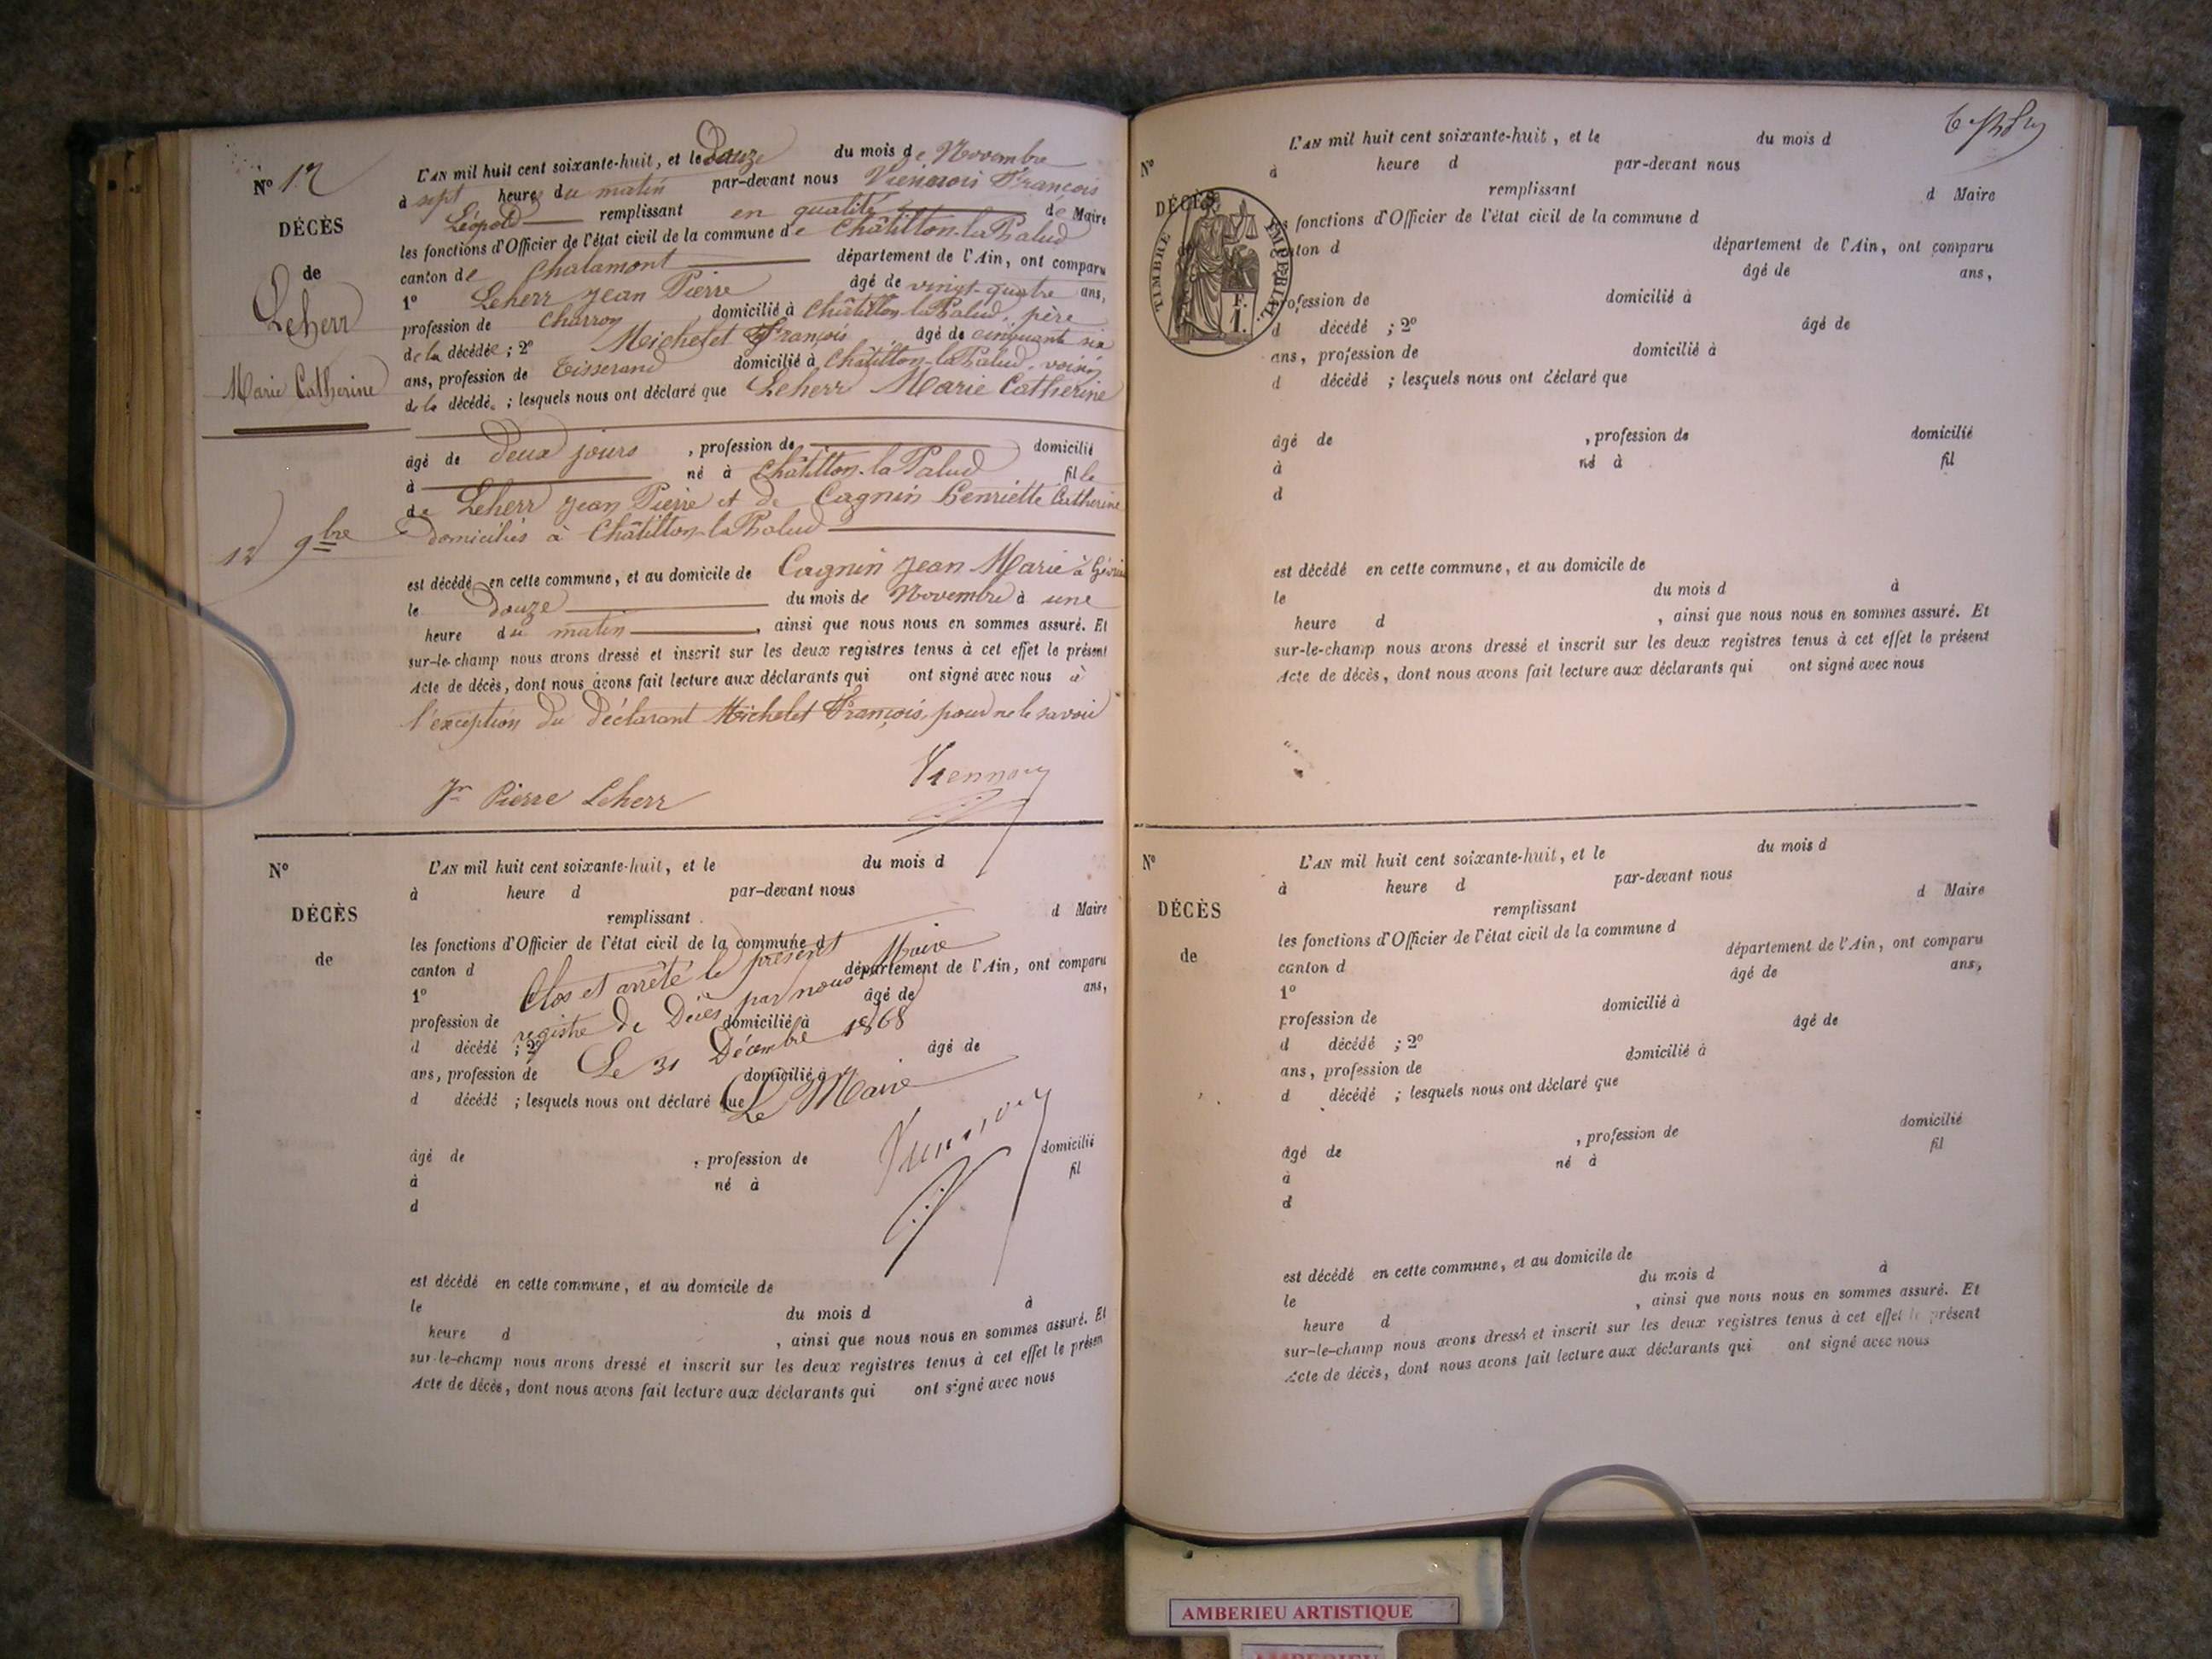 N° 12
DÉCÈS
de
Leherr
Marie Catherine
12 9bre
L'AN mil huit cent soixante-huit, et le Douze du mois de Novembre
à sept heures du matin par-devant nous Viennois François
Léopold remplissant en qualité de Maire
les fonctions d'Officier de l'état civil de la commune de Châtillon-la-Palud
canton de Chalamont département de l'Ain, ont comparu
1° Leherr Jean Pierre âgé de vingt-quatre ans,
profession de Charron domicilié à Châtillon-la-Palud, père
de la décédée ; 2° Michelet François âgé de cinquante six
ans, profession de Tisserand domicilié à Châtillon-la-Palud, voisin
de la décédée ; lesquels nous ont déclaré que Leherr Marie Catherine
âgé de Deux jours , profession de domicilié
à né à Châtillon-la-Palud fille
de Leherr Jean Pierre et de Cagnin Henriette Catherine
Domiciliés à Châtillon-la-Palud
est décédé en cette commune, et au domicile de Cagnin Jean Marie à
le Douze du mois de Novembre à une
heure du matin , ainsi que nous nous en sommes assuré. Et
sur-le-champ nous avons dressé et inscrit sur les deux registres tenus à cet effet le présent
Acte de décès, dont nous avons fait lecture aux déclarants qui ont signé avec nous à
l'exception du déclarant Michelet François, pour ne le savoir
Jn Pierre Leherr Viennois
N°
DÉCÈS
de
L'AN mil huit cent soixante-huit, et le du mois d
à heure d par-devant nous
remplissant d Maire
les fonctions d'Officier de l'état civil de la commune d
canton d département de l'Ain, ont comparu
1° âgé de ans,
profession de domicilié à
d décédé ; 2° âgé de
ans, profession de domicilié à
d décédé ; lesquels nous ont déclaré que
Clos et arrêté le présent
registre de Décès par nous Maire
Le 31 Décembre 1868
Le Maire
Viennois
âgé de , profession de domicilié
à né à fil
d
est décédé en cette commune, et au domicile de
le du mois d à
heure d , ainsi que nous nous en sommes assuré. Et
sur-le-champ nous avons dressé et inscrit sur les deux registres tenus à cet effet le présen
Acte de décès, dont nous avons fait lecture aux déclarants qui ont signé avec nous
N°
DÉCÈS
TIMBRE IMPÉRIAL.
L'AN mil huit cent soixante-huit, et le du mois d
à heure d par-devant nous
remplissant d Maire
s fonctions d'Officier de l'état civil de la commune d
nton d département de l'Ain, ont comparu
âgé de ans,
rofession de domicilié à
d décédé ; 2° âgé de
ans, profession de domicilié à
d décédé ; lesquels nous ont déclaré que
âgé de , profession de domicilié
à né à fil
d
est décédé en cette commune, et au domicile de
le du mois d à
heure d , ainsi que nous nous en sommes assuré. Et
sur-le-champ nous avons dressé et inscrit sur les deux registres tenus à cet effet le présent
Acte de décès, dont nous avons fait lecture aux déclarants qui ont signé avec nous
N°
DÉCÈS
de
L'AN mil huit cent soixante-huit, et le du mois d
à heure d par-devant nous
remplissant d Maire
les fonctions d'Officier de l'état civil de la commune d
canton d département de l'Ain, ont comparu
1° âgé de ans,
profession de domicilié à
d décédé ; 2° âgé de
ans, profession de domicilié à
d décédé ; lesquels nous ont déclaré que
âgé de , profession de domicilié
à né à fil
d
est décédé en cette commune, et au domicile de
le du mois d à
heure d , ainsi que nous nous en sommes assuré. Et
sur-le-champ nous avons dressé et inscrit sur les deux registres tenus à cet effet le présent
Acte de décès, dont nous avons fait lecture aux déclarants qui ont signé avec nous
AMBERIEU ARTISTIQUE
AMBERIEU